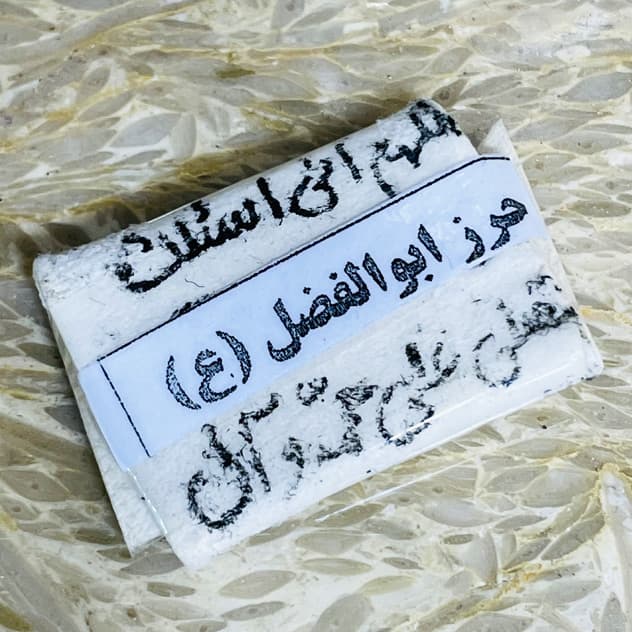 اللهم انی اسئلک
حرز ابوالفضل (ع)
تصلی علی محمد و آل